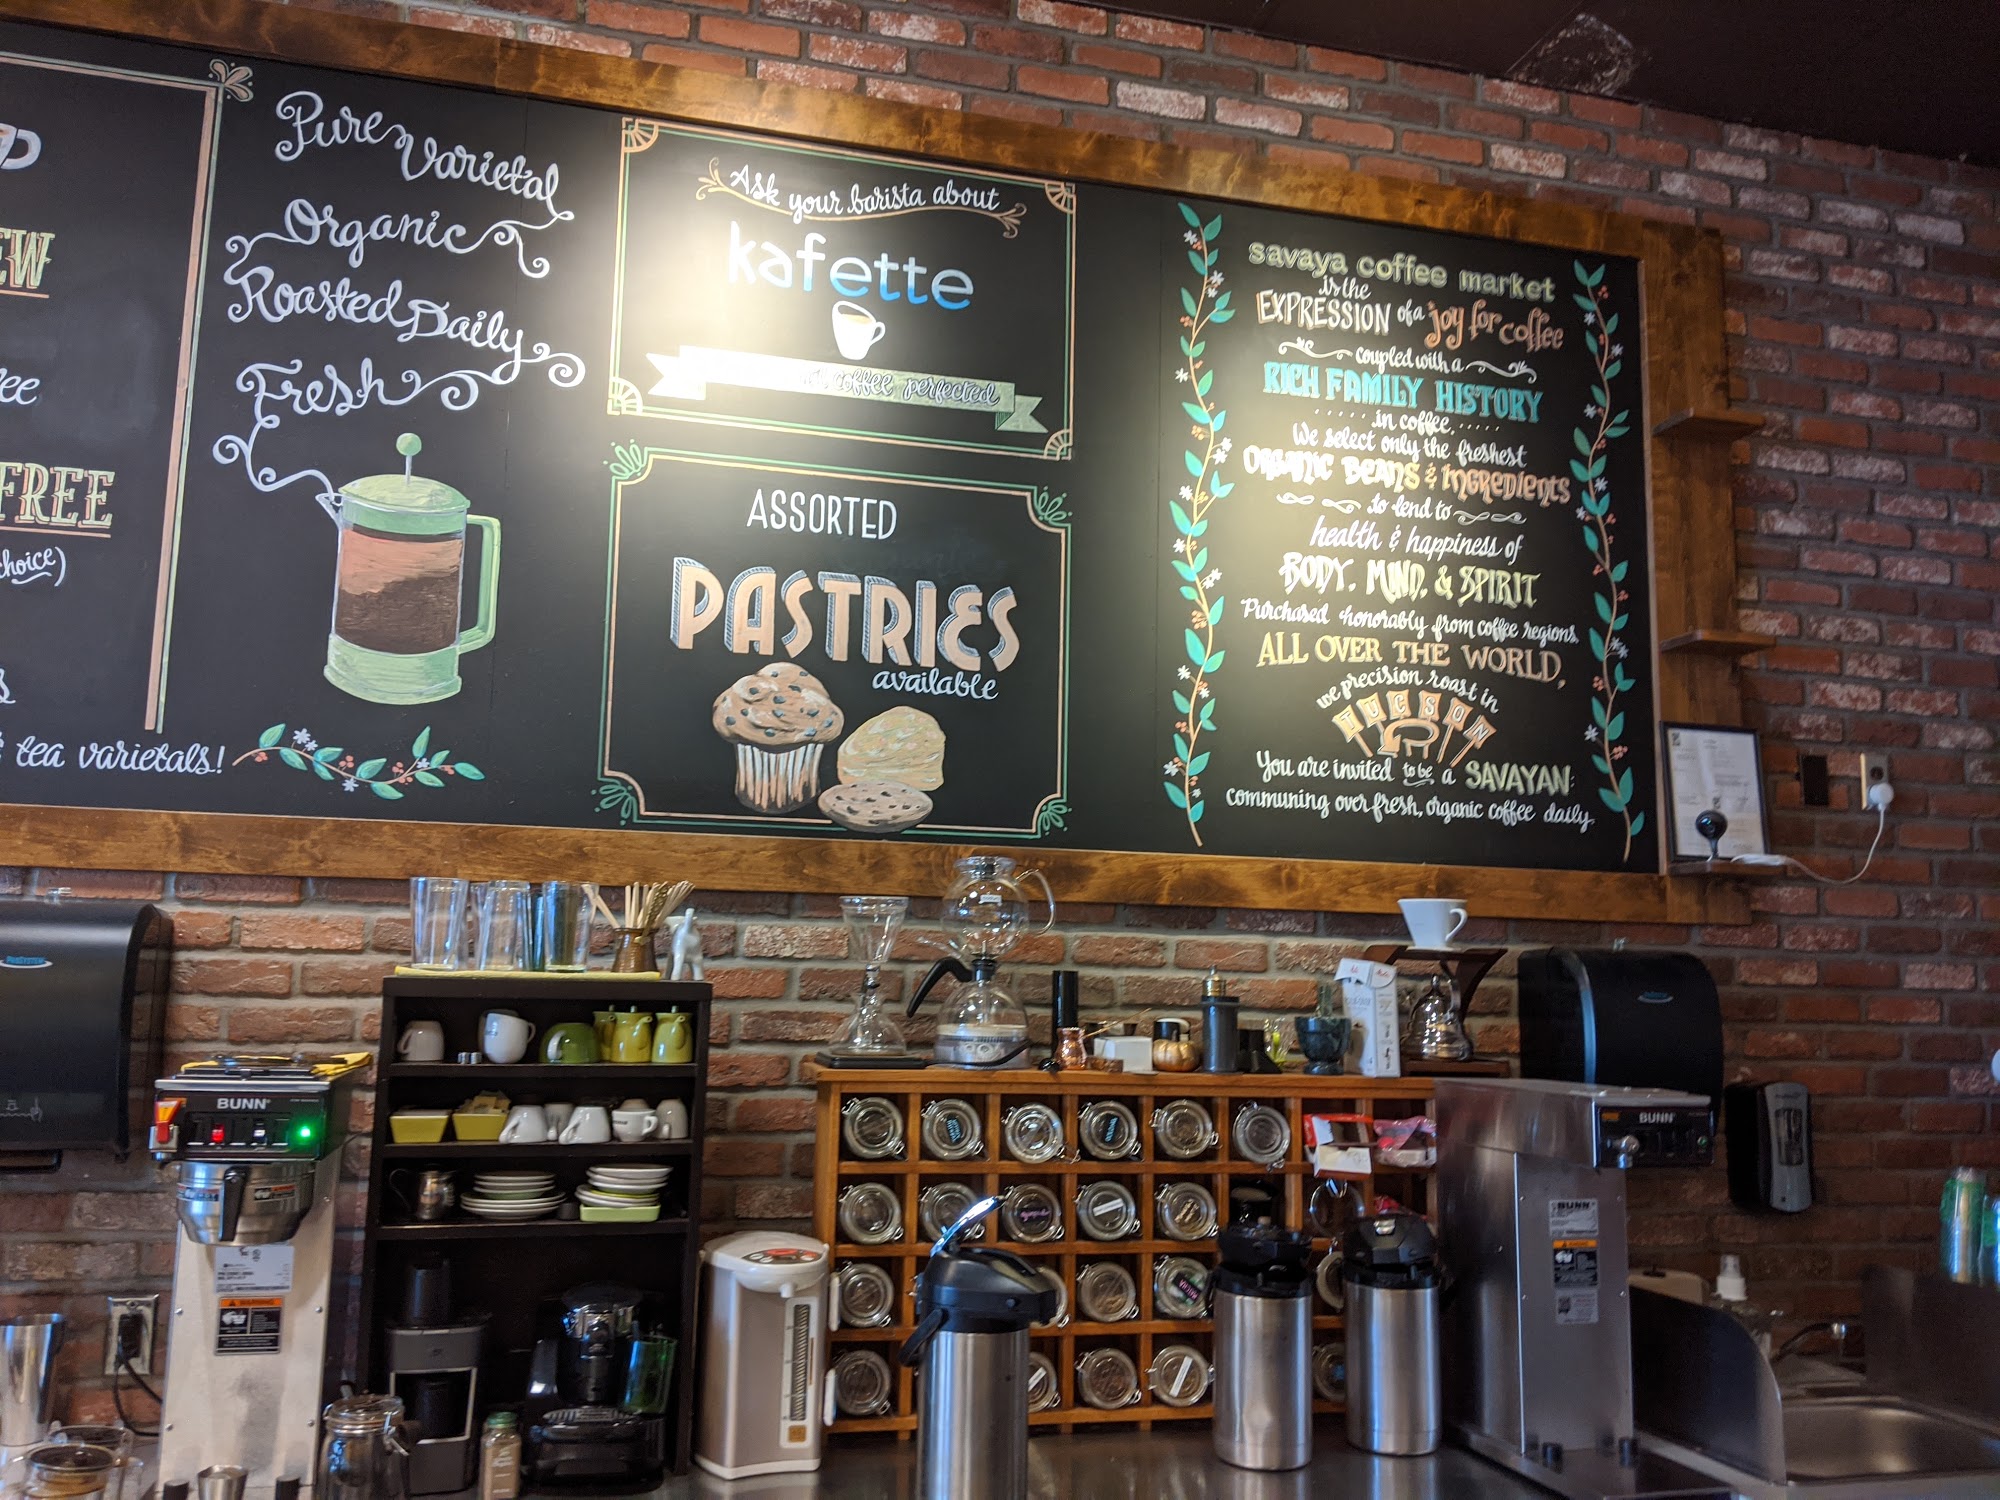 EW
FREE
choice)
tea varietals!
Pure Varietal
Organic
Roasted Daily
Fresh
Ask your barista about
kafette
coffee perfected
ASSORTED
PASTRIES
available
savaya coffee market
is the
EXPRESSION of a joy for coffee
coupled with a
RICH FAMILY HISTORY
in coffee.
We select only the freshest
ORGANIC BEANS & INGREDIENTS
to tend to
health & happiness of
BODY, MIND, & SPIRIT
Purchased honorably from coffee regions
ALL OVER THE WORLD,
we precision roast in
TUCSON
You are invited to be a SAVAYAN:
communing over fresh, organic coffee daily.
BUNN
BUNN
BUNN
WARNING